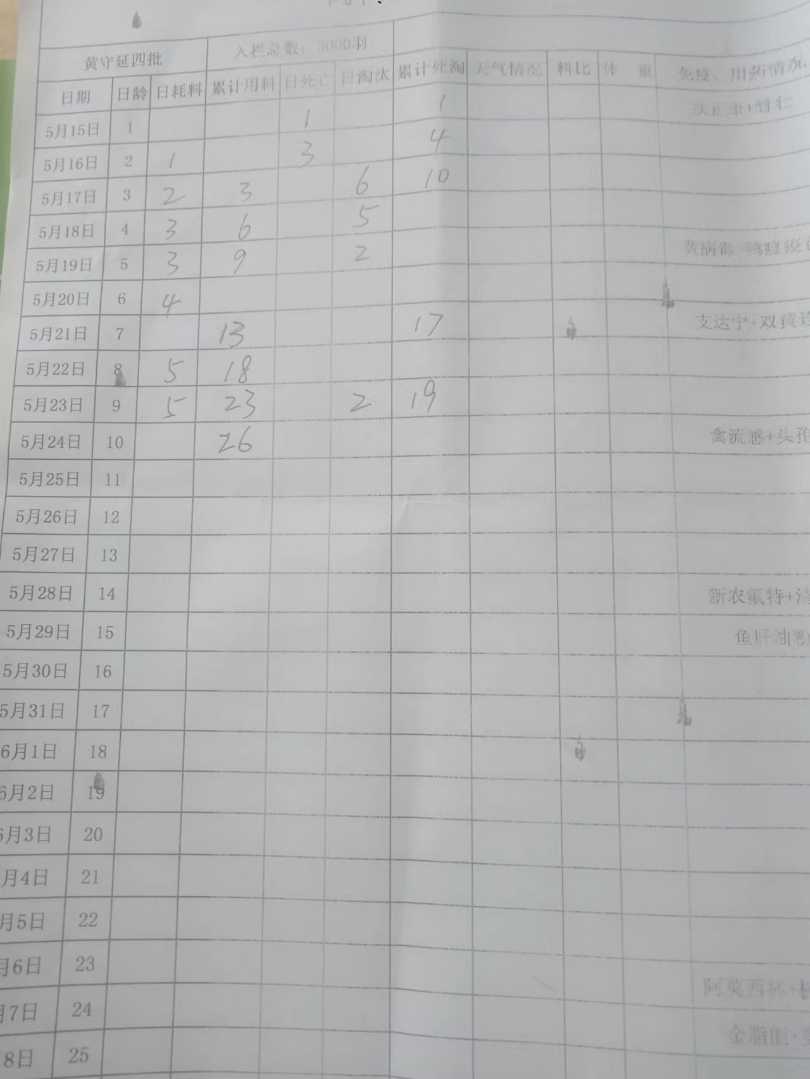 黄守延四批 入栏总数：3000羽
日期 日龄 日耗料 累计用料 日死亡 日淘汰 累计死淘 天气情况 料比 体 重 免疫、用药情况
5月15日 1 1 1
5月16日 2 1 3 4
5月17日 3 2 3 6 10
5月18日 4 3 6 5
5月19日 5 3 9 2
5月20日 6 4
5月21日 7 13 17 支达宁+双黄连
5月22日 8 5 18
5月23日 9 5 23 2 19
5月24日 10 26 禽流感+头孢
5月25日 11
5月26日 12
5月27日 13
5月28日 14 新农氟特+
5月29日 15 鱼肝油
5月30日 16
5月31日 17
6月1日 18
6月2日 19
6月3日 20
月4日 21
月5日 22
月6日 23 阿莫西林+
月7日 24
8日 25